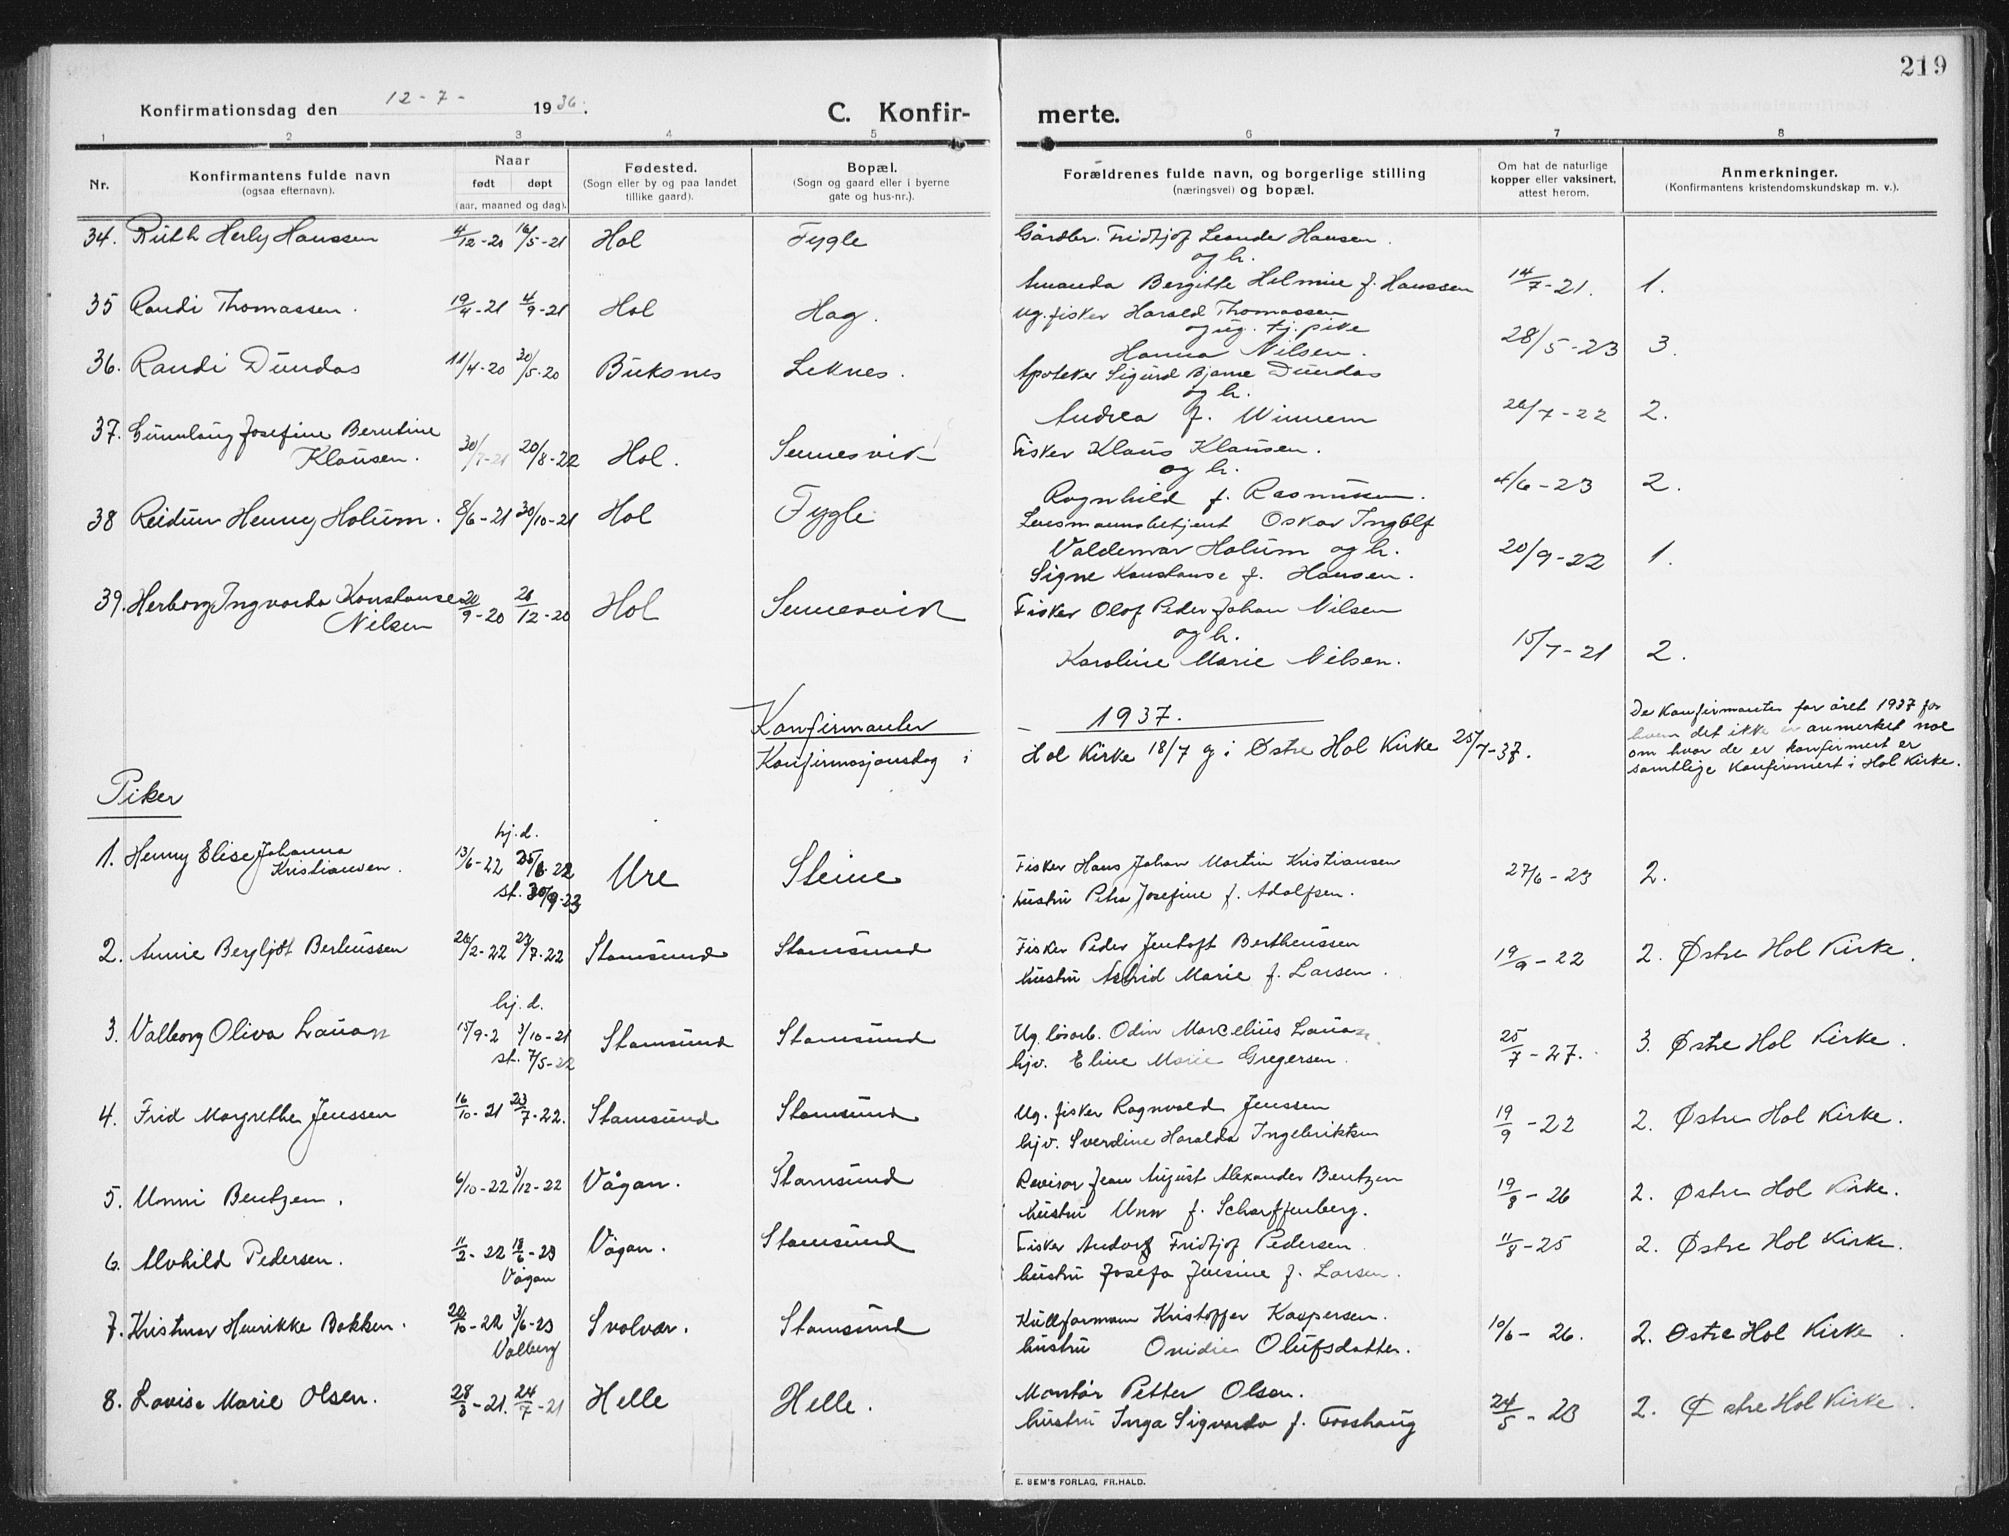 219
Konfirmationsdag den 12-7- 1936.
C. Konfirmerte.
1 2 3 4 5 6 7 8
Nr.
Konfirmantens fulde navn
(ogsaa efternavn).
Naar
født døpt
(aar, maaned og dag).
Fødested.
(Sogn eller by og paa landet
tillike gaard).
Bopæl.
(Sogn og gaard eller i byerne
gate og hus-nr.).
Forældrenes fulde navn, og borgerlige stilling
(næringsvei) og bopæl.
Om hat de naturlige
kopper eller vaksinert,
attest herom.
Anmerkninger.
(Konfirmantens kristendomskundskap m. v.).
34. Ruth Herly Hanssen 4/12-20 16/5-21 Hol Fygle Gårdbr. Fridtjof Leander Hansen.
og h.
Amanda Bergitte Helmine f. Hanssen 14/7-21. 1.
35 Randi Thomassen. 19/4-21 4/9-21 Hol Hag. Ug. fisker Harald Thomassen
og ug. tj. pike
Hanna Nilsen. 28/5-23 3.
36. Randi Dundas 11/4-20 30/5-20 Buksnes Leknes. Apoteker Sigurd Bjarne Dundas
og h.
Andrea f. Winnem 26/7-22 2.
37. Gunnlaug Josefine Berntine
Klausen. 30/7-21 20/8-22 Hol. Sennesvik Fisker Klaus Klausen.
og h.
Ragnhild f. Rasmussen. 4/6-23 2.
38 Reidun Henny Holum. 8/6-21 30/10-21 Hol Fygle Lensmannsbetjent Oskar Ingolf
Valdemar Holum og h.
Signe Konstanse f. Hansen. 20/9-22 1.
39. Herborg Ingvarda Konstanse
Nilsen 20/9-20 26/12-20 Hol Sennesvik Fisker Olaf Peder Johan Nilsen
og h.
Karoline Marie Nilsen. 15/7-21 2.
Konfirmanter 1937.
Konfirmasjonsdag i Hol Kirke 18/7 og i Østre Hol Kirke 25/7-37.
De Konfirmanter for året 1937 for
hvem det ikke er anmerket noe
om hvor de er konfirmert er
samtlige Konfirmert i Hol Kirke.
Piker
1. Henny Elise Johanna
Kristiansen. 13/6-22 hj.d. 25/6-22
st. 30/9-23 Ure Steine Fisker Hans Johan Martin Kristiansen
hustru Petra Josefine f. Adolfsen. 27/6-23 2.
2. Annie Bergljot Berteussen 26/2-22 23/7-22 Stamsund Stamsund Fisker Peder Jentoft Bertheussen
hustru Astrid Marie f. Larsen. 19/9-22 2. Østre Hol Kirke.
3. Valborg Oliva Lauan 15/9-2 hj.d. 3/10-21
st. 7/5-22 Stamsund Stamsund Ug. løsarb. Odin Marcelius Lauan.
hjv. Eline Marie Gregersen. 25/7-27. 3. Østre Hol Kirke.
4. Frid Margrethe Jenssen 16/10-21 23/7-22. Stamsund Stamsund Ug. fisker Ragnvald Jenssen
hjv. Sverdine Haralda Ingebriktsen 19/9-22 2. Østre Hol Kirke.
5. Unni Bentzen. 6/10-22 3/12-22 Vågan. Stamsund Revisor Jean August Alexander Bentzen
hustru Unn f. Scharffenberg. 19/8-26 2. Østre Hol Kirke.
6. Alvhild Pedersen. 11/2-22 18/6-23
Vågan Vågan. Stamsund Fisker Andor Fridtjof Pedersen
hustru Josefa Jensine f. Larsen. 11/8-25 2. Østre Hol Kirke.
7. Kristmar Henrikke Bakken. 20/10-22 3/6-23
Valberg Svolvær. Stamsund Kullformann Kristoffer Kaspersen.
hustru Ovidia Olufsdatter. 10/6-26. 2. Østre Hol Kirke.
8. Lovise Marie Olsen. 28/3-21. 24/7-21 Helle Helle. Montør Petter Olsen.
hustru Inga Sigvarda f. Fosshaug 24/5-23 2. Østre Hol Kirke.
E. SEM'S FORLAG, FR.HALD.